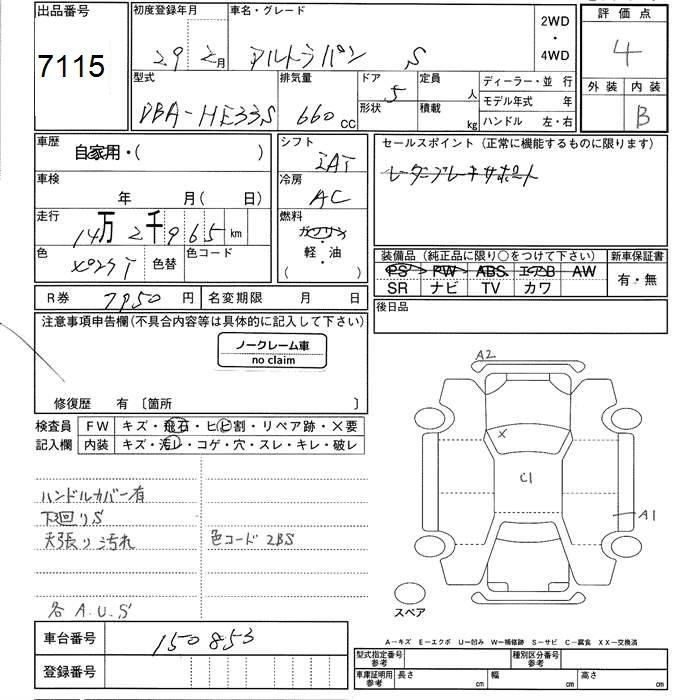 出品番号 初度登録年月 車名・グレード 2WD・4WD 評価点
7115 29年 2月 アルトラパン S 4
型式 排気量 ドア 定員 人 ディーラー・並行 外装 内装
DBA-HE33S 660 CC 5 形状 積載 kg モデル年式 年 B
ハンドル 左・右
車歴 自家用・( ) シフト IAT セールスポイント (正常に機能するものに限ります)
車検 年 月(日) 冷房 AC レーダーブレーキサポート
走行 14万2千965km 燃料 ガソリン
色 色替 色コード (軽・油) 装備品 (純正品に限り○をつけて下さい) 新車保証書
PS PW ABS エアB AW 有・無
SR ナビ TV カワ
R券 7950円 名変期限 月 日 後日品
注意事項申告欄(不具合内容等は具体的に記入して下さい)
ノークレーム車
no claim
修復歴 有 〔箇所 〕
検査員 FW キズ・飛石・ヒビ割・リペア跡・×要
記入欄 内装 キズ・汚レ・コゲ・穴・スレ・キレ・破レ
ハンドルカバー有
下回りS
天張り汚れ 色コード 2BS
各A.U.S
A2
X
C1
A1
スペア
車台番号 150853
登録番号
A-キズ E-エクボ U-凹み W-補修跡 S-サビ C-腐食 XX-交換済
型式指定番号参考 種別区分番号参考
車庫証明用参考 長さ cm 幅 cm 高さ cm